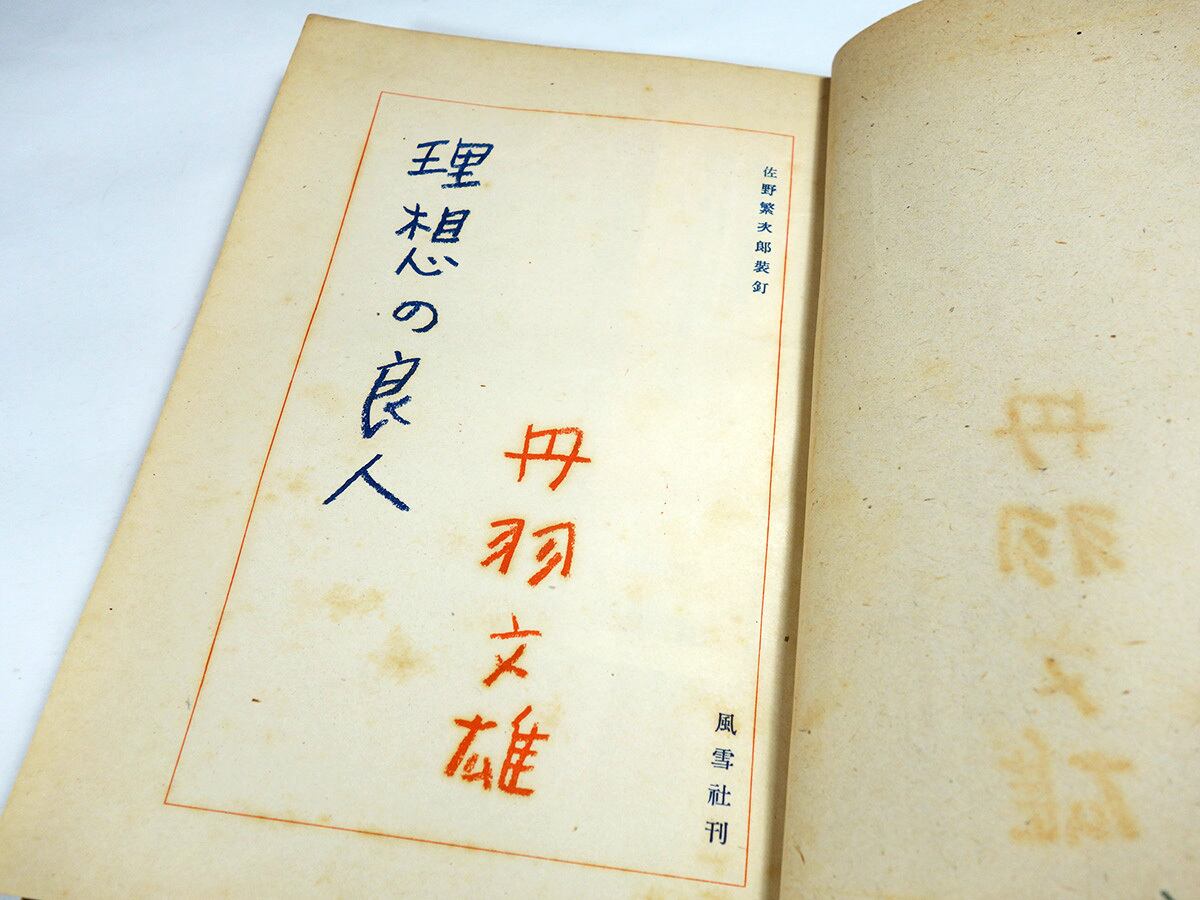 佐野繁次郎裝釘
風雪社刊
丹羽文雄
理想の良人